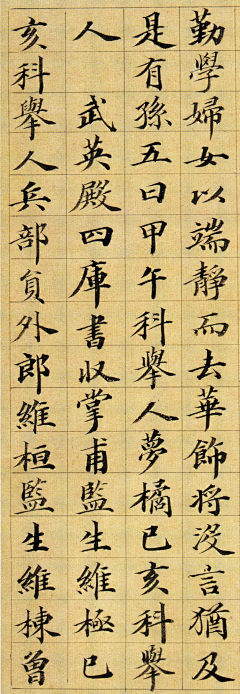 勤學婦女以端靜而去華飾將沒言猶及
是有孫五曰甲午科舉人夢橘已亥科舉
人　武英殿四庫書收掌甫監生維極已
亥科舉人兵部員外郎維桓監生維棟曾